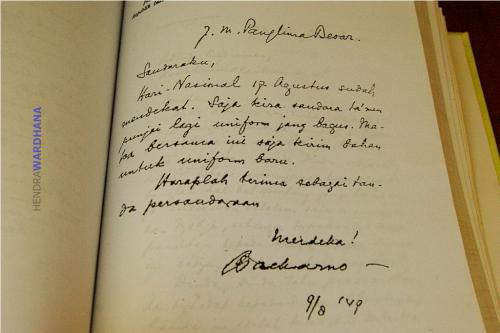 J. M. Panglima Besar.
Saudaraku,
Hari-Nasional 17 Agustus sudah
mendekat. Saja kira saudara ta'mem
punjai lagi uniform jang bagus. Ma-
ka bersama ini saja kirim bahan
untuk uniform baru.
Haraplah terima sebagai tan-
da persaudaraan
Merdeka!
Soekarno
9/8 '49
HENDRAWARDHANA